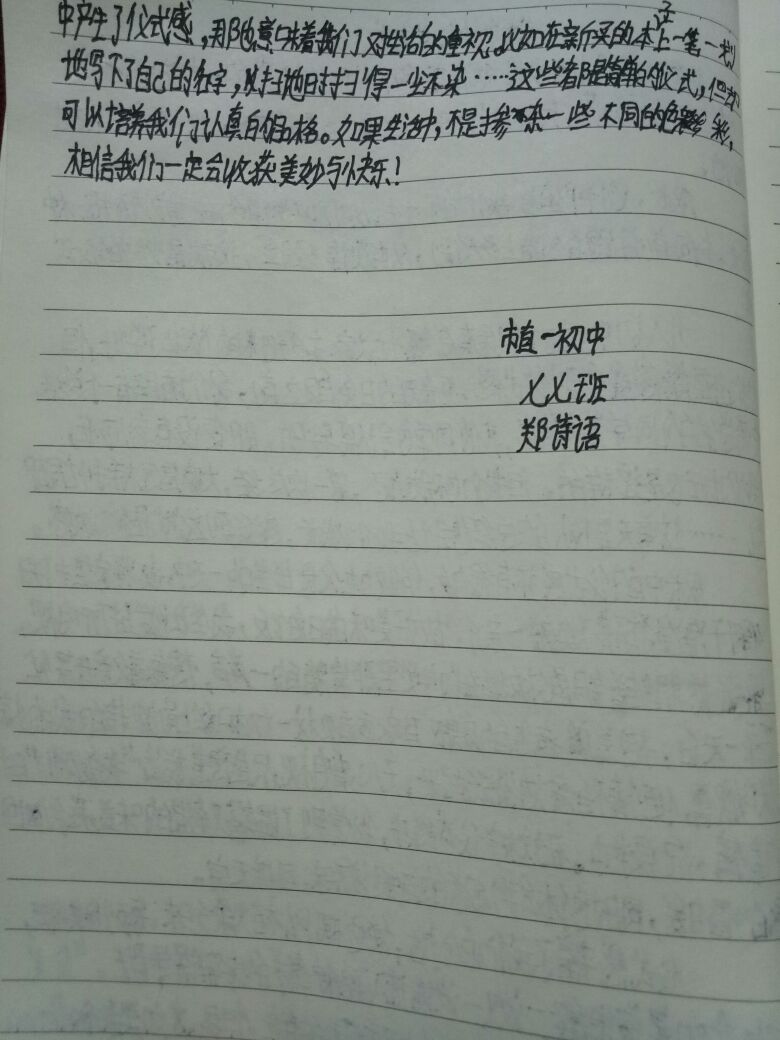 中产生了仪式感，那意味着我们对生活的重视。比如在新买的本子上一笔一划
地写下了自己的名字，以扫地时扫得一尘不染……这些都是简单的仪式，但却
可以培养我们认真的品格。如果生活中，不是掺杂一些不同的色彩，
相信我们一定会收获美妙与快乐！
市直一初中
乂乂班
郑诗语